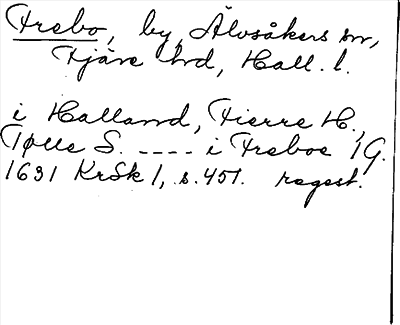 Frebo, by, Älvsåkers sn,
Fjäre hd, Hall. l.
i Halland, Fierre H.,
Tølle S. ---- i Freboe 1 G.
1631 KrSk 1, s. 451. regest.